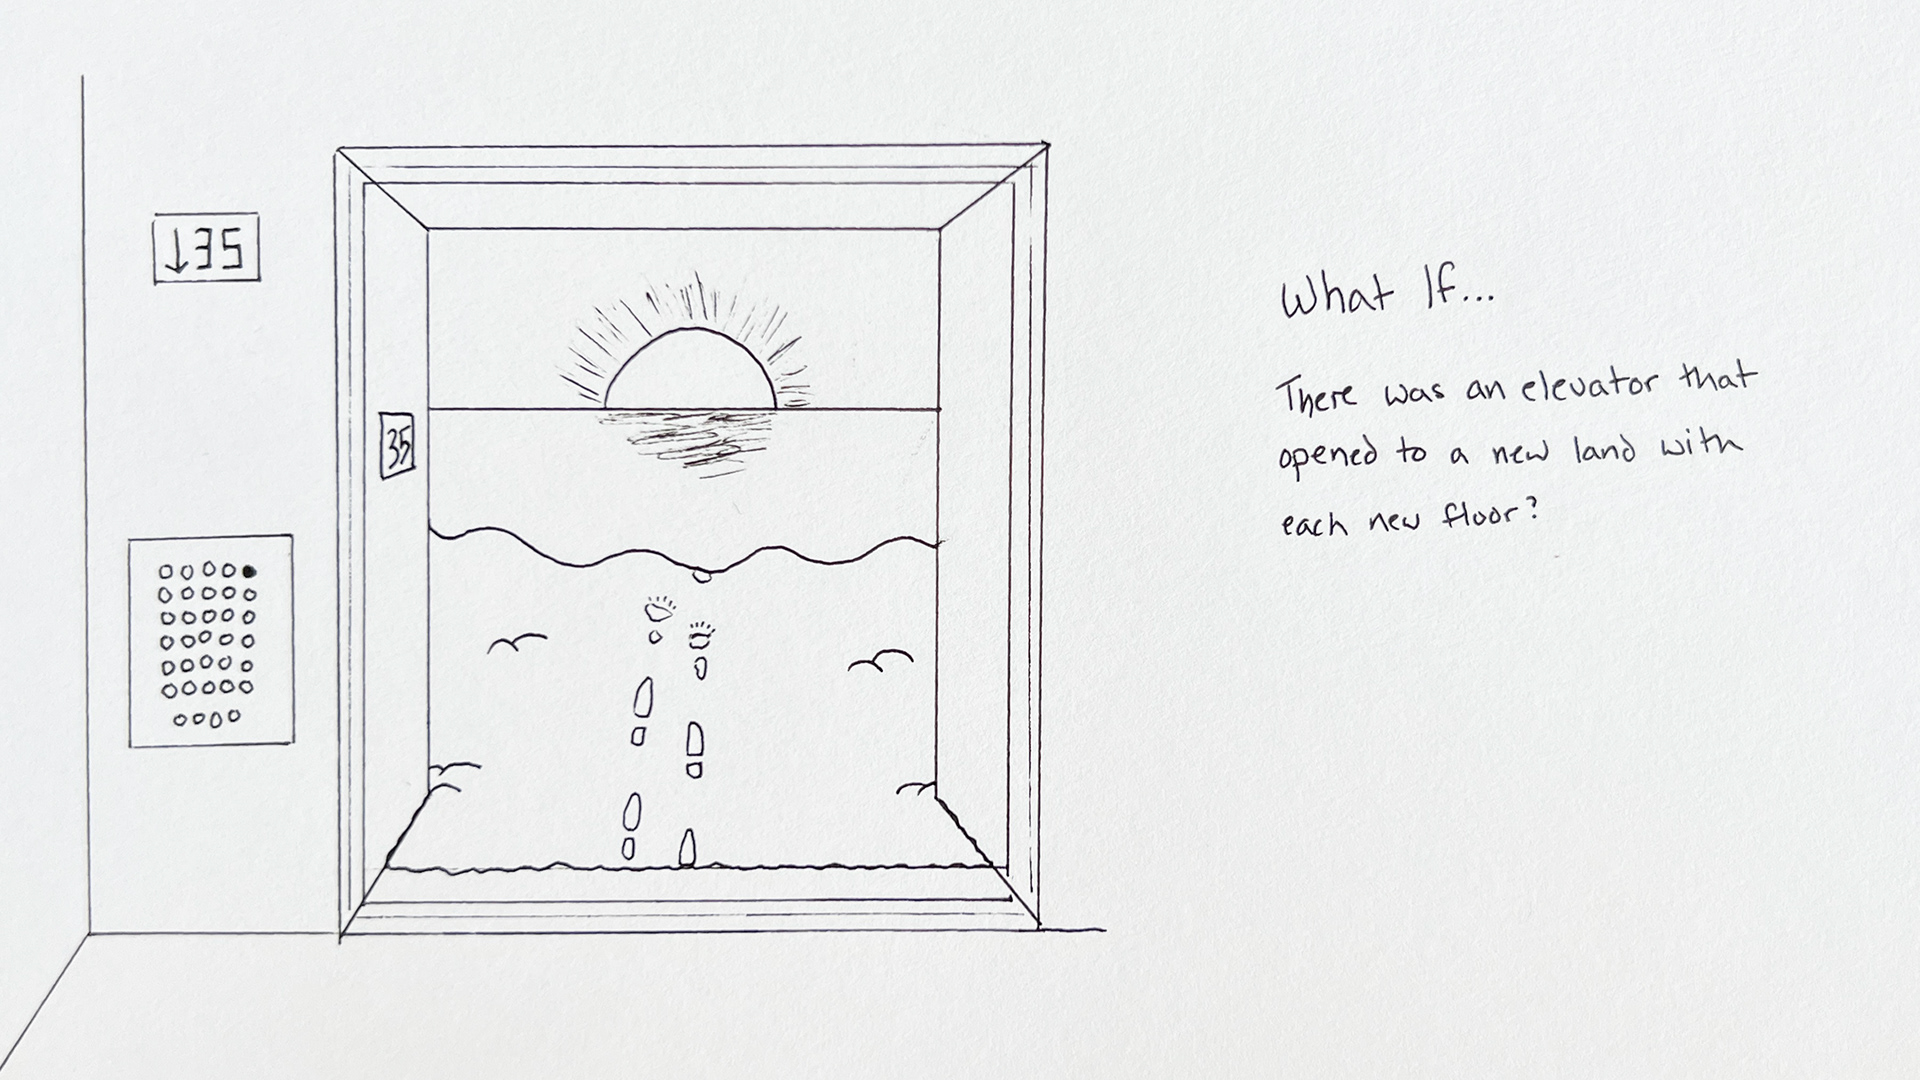 ↓35
35
What If...
There was an elevator that
opened to a new land with
each new floor?